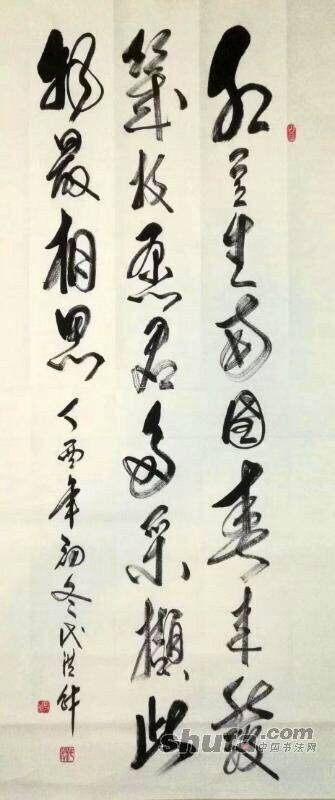 红豆生南國春来發
幾枝愿君多采擷此
物最相思 丁酉年初冬
shufa.com
中国书法网